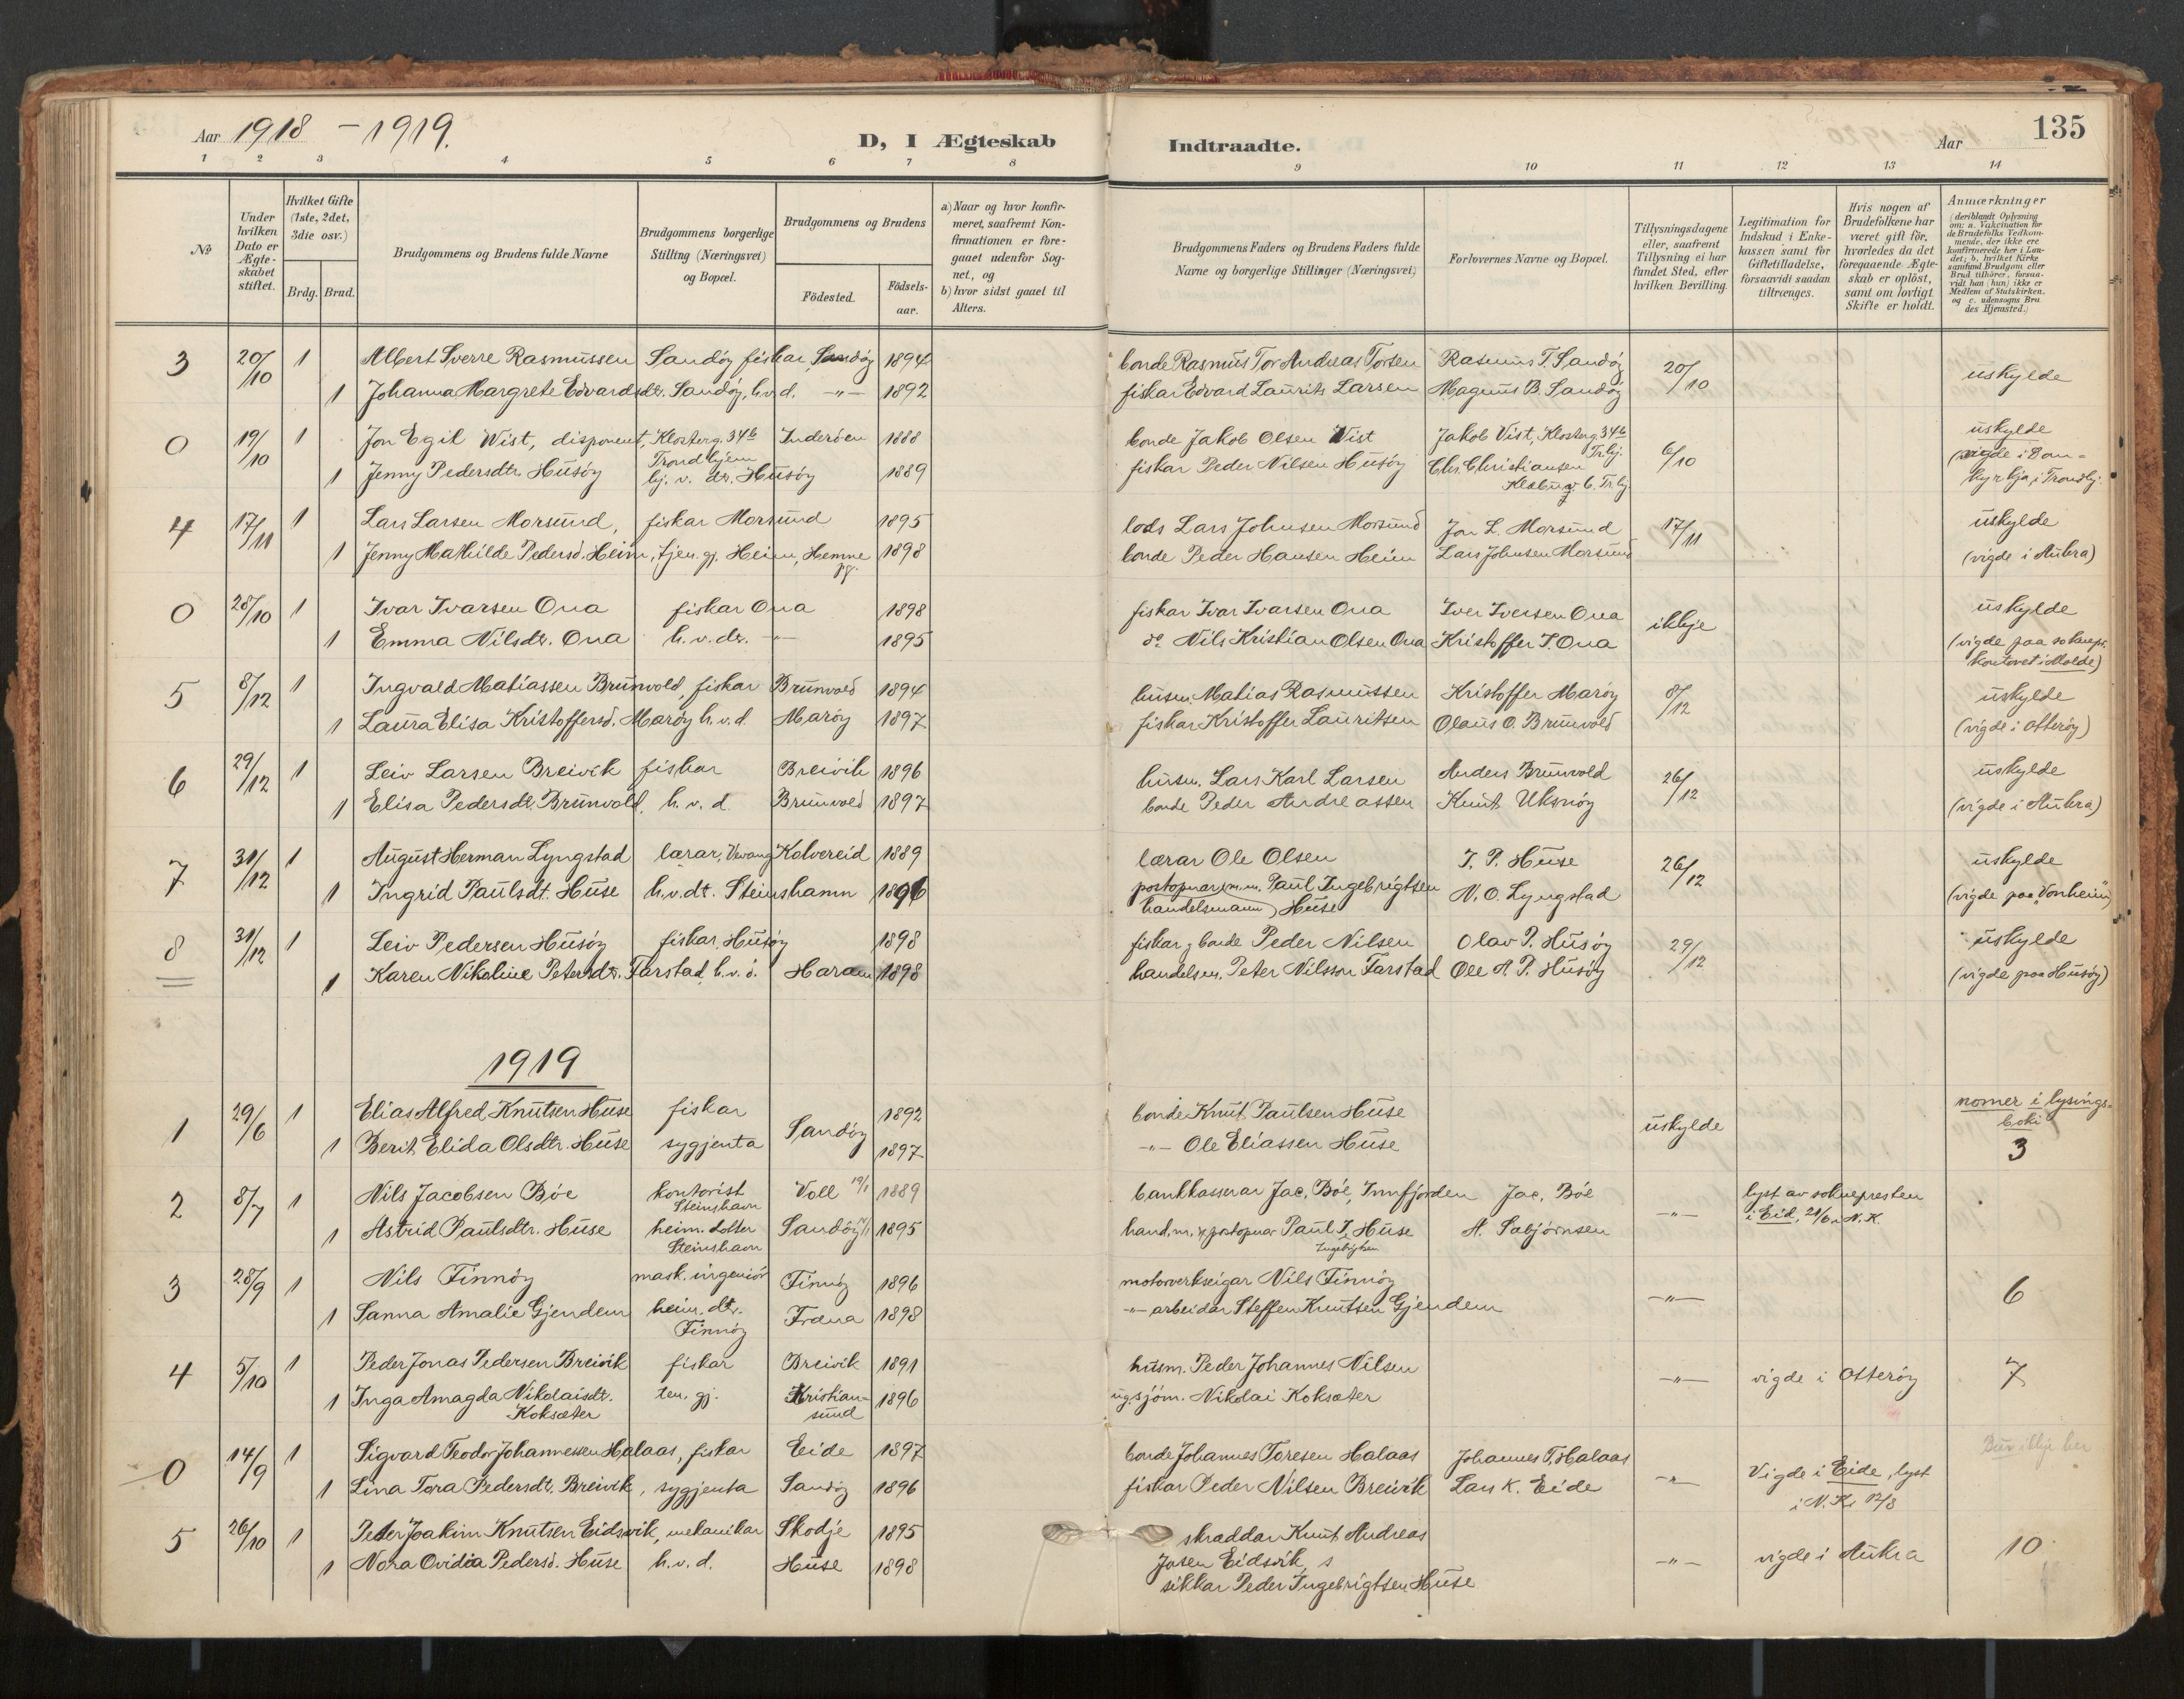 Aar 1918 - 1919.
D, I Ægteskab
Indtraadte.
Aar
135
1 2 3 4 5 6 7 8 9 10 11 12 13 14
No
Under hvilken Dato er Ægteskabet stiftet.
Hvilket Gifte (1ste, 2det, 3die osv.)
Brdg. Brud.
Brudgommens og Brudens fulde Navne
Brudgommens borgerlige Stilling (Næringsvei) og Bopæl.
Brudgommens og Brudens
Födested.
Födselsaar.
a) Naar og hvor konfirmeret, saafremt Konfirmationen er foregaaet udenfor Sognet, og
b) hvor sidst gaaet til Alters.
Brudgommens Faders og Brudens Faders fulde Navne og borgerlige Stillinger (Næringsvei)
Forlovernes Navne og Bopæl.
Tillysningsdagene eller, saafremt Tillysning ei har fundet Sted, efter hvilken Bevilling.
Legitimation for Indskud i Enkekassen samt for Giftetilladelse, forsaavidt saadan tiltrænges.
Hvis nogen af Brudefolkene har været gift för, hvorledes da det foregaaende Ægteskab er oplöst, samt om lovligt Skifte er holdt.
Anmærkninger
(deriblandt Oplysning om: a. Vakcination for de Brudefolks Vedkommende, der ikke ere konfirmerede her i Landet; b. hvilket Kirkesamfund Brudgom eller Brud tilhörer, forsaavidt han (hun) ikke er Medlem af Statskirken. og c. udensogns Brudes Hjemsted.)
3 20/10 1 Albert Sverre Rasmussen Sandöy fiskar Sandöy 1894 bonde Rasmus Tor Andreas Torsen Rasmus T. Sandöy 20/10 uskylde
1 Johanna Margrete Edvardsdtr. Sandöy, h.v.d. -"- 1892 fiskar Edvard Laurits Larsen Magnus B. Sandöy
0 19/10 1 Jon Egil Wist, disponent, Klosterg. 34b Trondhjem Inderöen 1888 bonde Jakob Olsen Wist Jakob Vist, Klosterg. 34b Tr.hj. 6/10 uskylde
1 Jenny Pedersdtr. Husöy hj. v. dr. Husöy 1889 fiskar Peder Nilsen Husöy Chr. Christiansen (vigde i Domkyrkja, i Trondhj.
4 17/11 1 Lars Larsen Morsund, fiskar Morsund 1895 lods Lars Johnsen Morsund Jon L. Morsund 17/11 uskylde
1 Jenny Mathilde Pedersd. Heim, tjen. gj. Heim, Hemne pg. 1898 bonde Peder Hansen Heim Lars Johnsen Morsund (vigde i Aukra)
0 28/10 1 Ivar Ivarsen Ona fiskar Ona 1898 fiskar Ivar Ivarsen Ona Iver Iversen Ona ikkje uskylde
1 Emma Nilsdr. Ona h.v.dr. -"- 1895 do Nils Kristian Olsen Ona Kristoffer I. Ona (vigde paa soknepr. kontoret i Molde)
5 8/12 1 Ingvald Matiassen Brunvold, fiskar Brunvold 1894 husm. Matias Rasmussen Kristoffer Maröy 8/12 uskylde
1 Laura Elisa Kristoffersd. Maröy h.v.d. Maröy 1897 fiskar Kristoffer Lauritsen Olaus O. Brunvold (vigde i Otteröy)
6 29/12 1 Leiv Larsen Breivik fiskar Breivik 1896 husm. Lars Karl Larsen Anders Brunvold 26/12 uskylde
1 Elisa Pedersdt. Brunvold, h.v.d. Brunvold 1897 bonde Peder Andreassen Knut Uksnöy (vigde i Aukra)
7 31/12 1 August Herman Lyngstad lærar, Vevang Kolvereid 1889 lærar Ole Olsen I. P. Huse 26/12 uskylde
1 Ingrid Paulsdt. Huse h.v.dt. Steinshamn 1896 postopnar, m.m. Paul Ingebrigtsen handelsmann) Huse N. O. Lyngstad (vigde paa "Vonheim")
8 31/12 1 Leiv Pedersen Husöy fiskar, Husöy 1898 fiskar, bonde Peder Nilsen Olav P. Husöy 29/12 uskylde
1 Karen Nikoline Petersdt. Farstad h.v.d. Haram 1898 handelsm. Peter Nilsson Farstad Ole A. P. Husöy (vigde paa Husöy)
1919
1 29/6 1 Elias Alfred Knutsen Huse fiskar Sandöy 1892 bonde Knut Paulsen Huse uskylde nomer i lysingsboki
1 Berit Elida Olsdtr. Huse sygjenta 1897 -"- Ole Eliassen Huse 3
2 8/7 1 Nils Jacobsen Böe kontorist Steinshavn Voll 19/1 1889 bankkasserar Jac. Böe, Innfjorden Jac. Böe -"- lyst av soknepresten i Eid, 21/6 i N.K.
1 Astrid Paulsdtr. Huse heim. dotter Steinshavn Sandöy 1895 hand.m. & postopnar Paul I. Huse Ingebrigtsen A. Sæbjörnsen
3 28/9 1 Nils Finnöy mask. ingeniör Finnöy 1896 motorverkseigar Nils Finnöy -"- 6
1 Sanna Amalie Gjendem heim. dtr. Finnöy Fræna 1898 -"- arbeidar Steffen Knutsen Gjendem
4 5/10 1 Peder Jonas Pedersen Breivik fiskar Breivik 1891 husm. Peder Johannes Nilsen -"- vigde i Otteröy 7
1 Inga Amagda Nikolaisdt. Koksæter ten. gj. Kristiansund 1896 ug. sjöm. Nikolai Koksæter
0 14/9 1 Sigvard Teodor Johannessen Halaas, fiskar Eide 1897 bonde Johannes Toresen Halaas Johannes T. Halaas -"- Vigde i Eide, lyst i N.K. 12/8 Bur ikkje her
1 Lina Tora Pedersdt. Breivik, sygjenta Sandöy 1896 fiskar Peder Nilsen Breivik Lars K. Eide
5 26/10 1 Peder Joakim Knutsen Eidsvik, mekanikar Skodje 1895 skraddar Knut Andreas Josen Eidsvik, s -"- vigde i Aukra 10
1 Nora Ovidia Pedersd. Huse h.v.d. Huse 1898 sikkar Peder Ingebrigtsen Huse